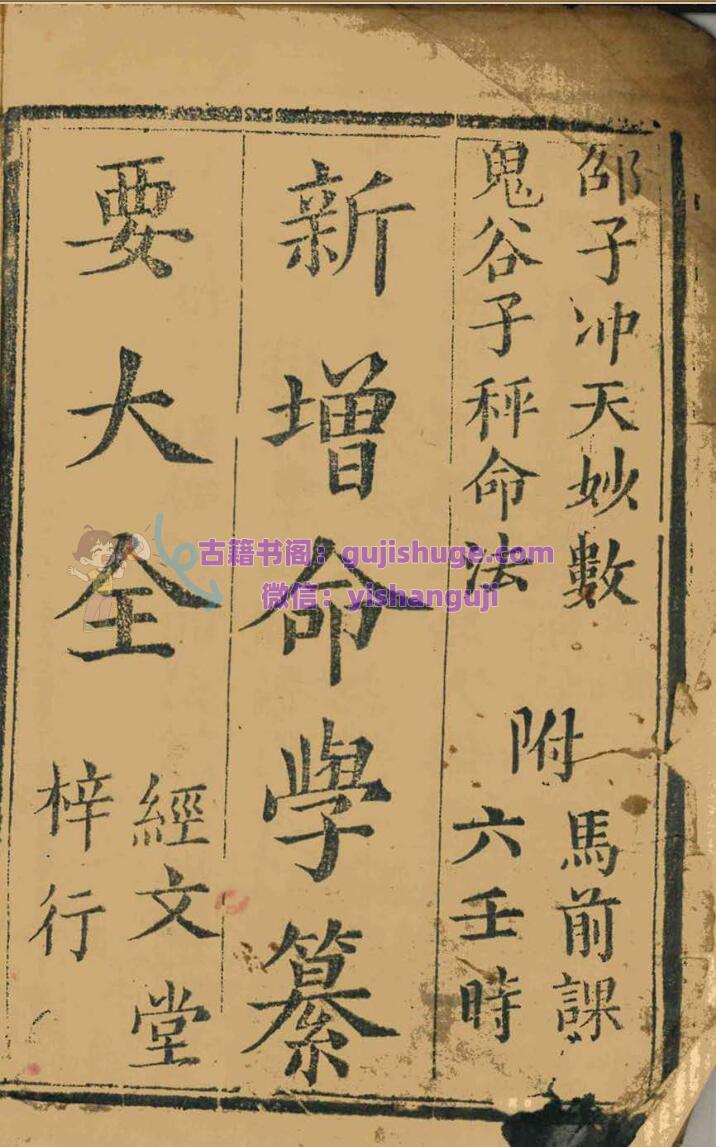 邵子冲天妙數
鬼谷子秤命法
附
馬前課
六壬時
新增命學纂
要大全
經文堂
梓行
古籍书阁：gujishuge.com
微信：yishanguji